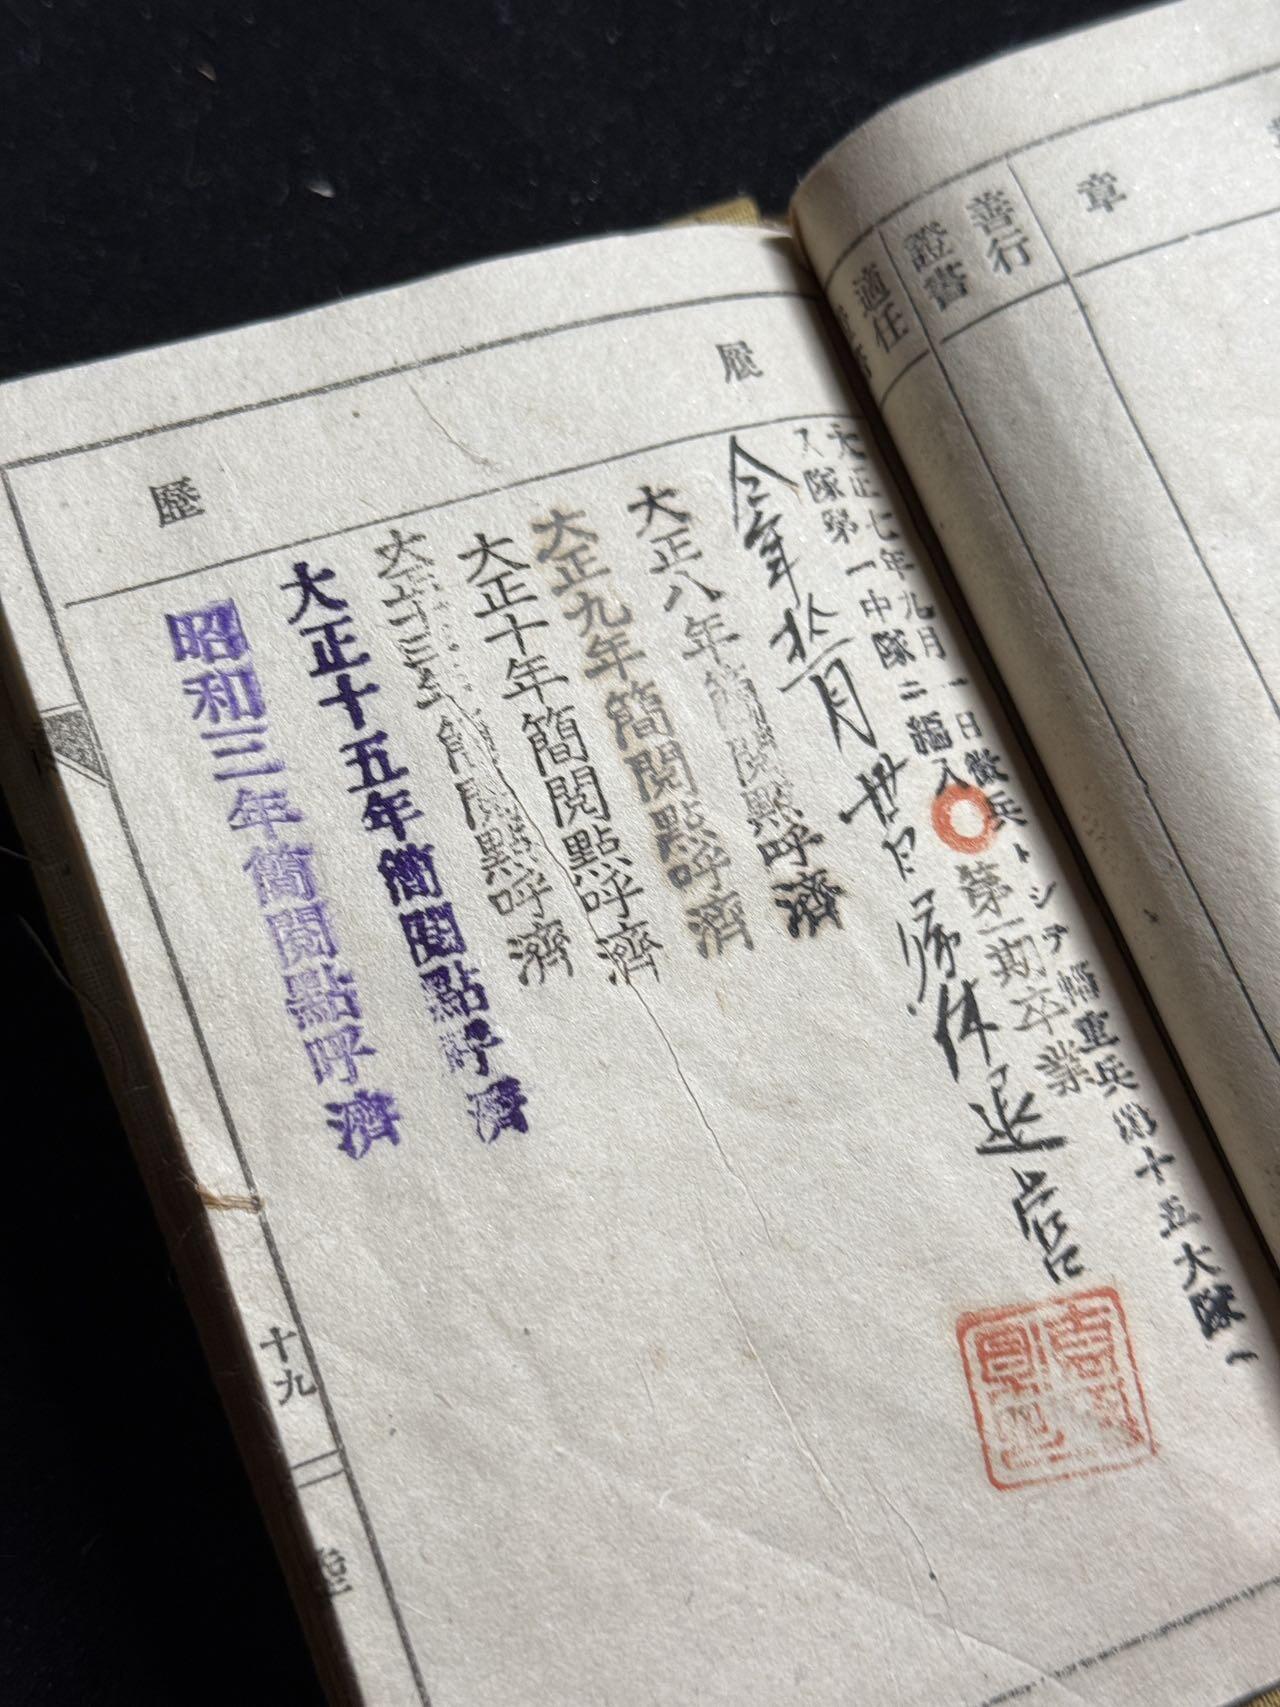 章
善行
證書
適任
履歷
大正七年九月一日徵兵トシテ輜重兵第十五大隊一
入隊第一中隊ニ編入
第一期卒業
仝年拾一月廿日帰休退営
大正八年簡閱點呼濟
大正九年簡閱點呼濟
大正十年簡閱點呼濟
大正十三年簡閱點呼濟
大正十五年簡閱點呼濟
昭和三年簡閱點呼濟
十九